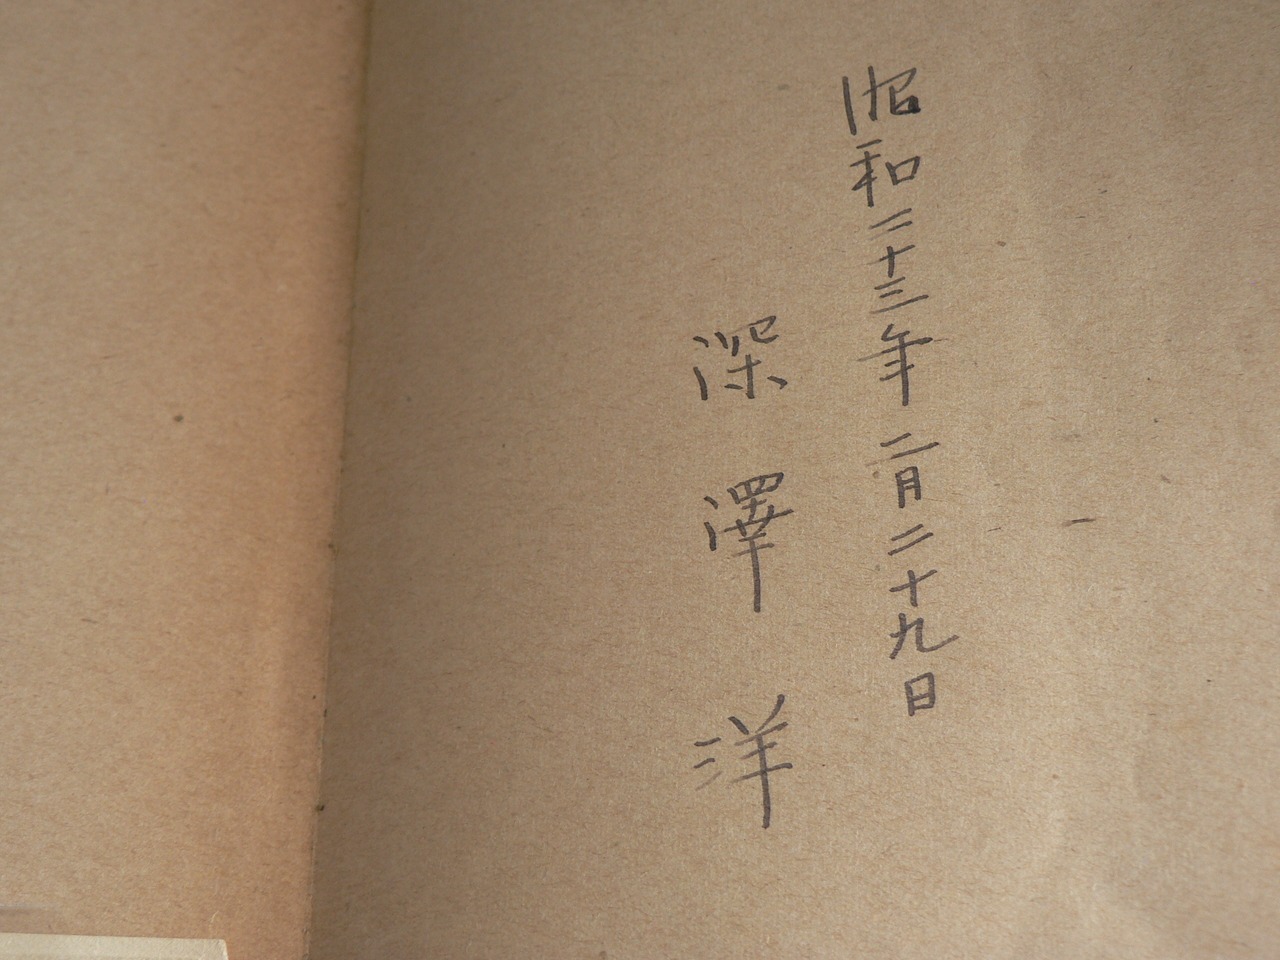 昭和二十三年二月二十九日
深澤洋